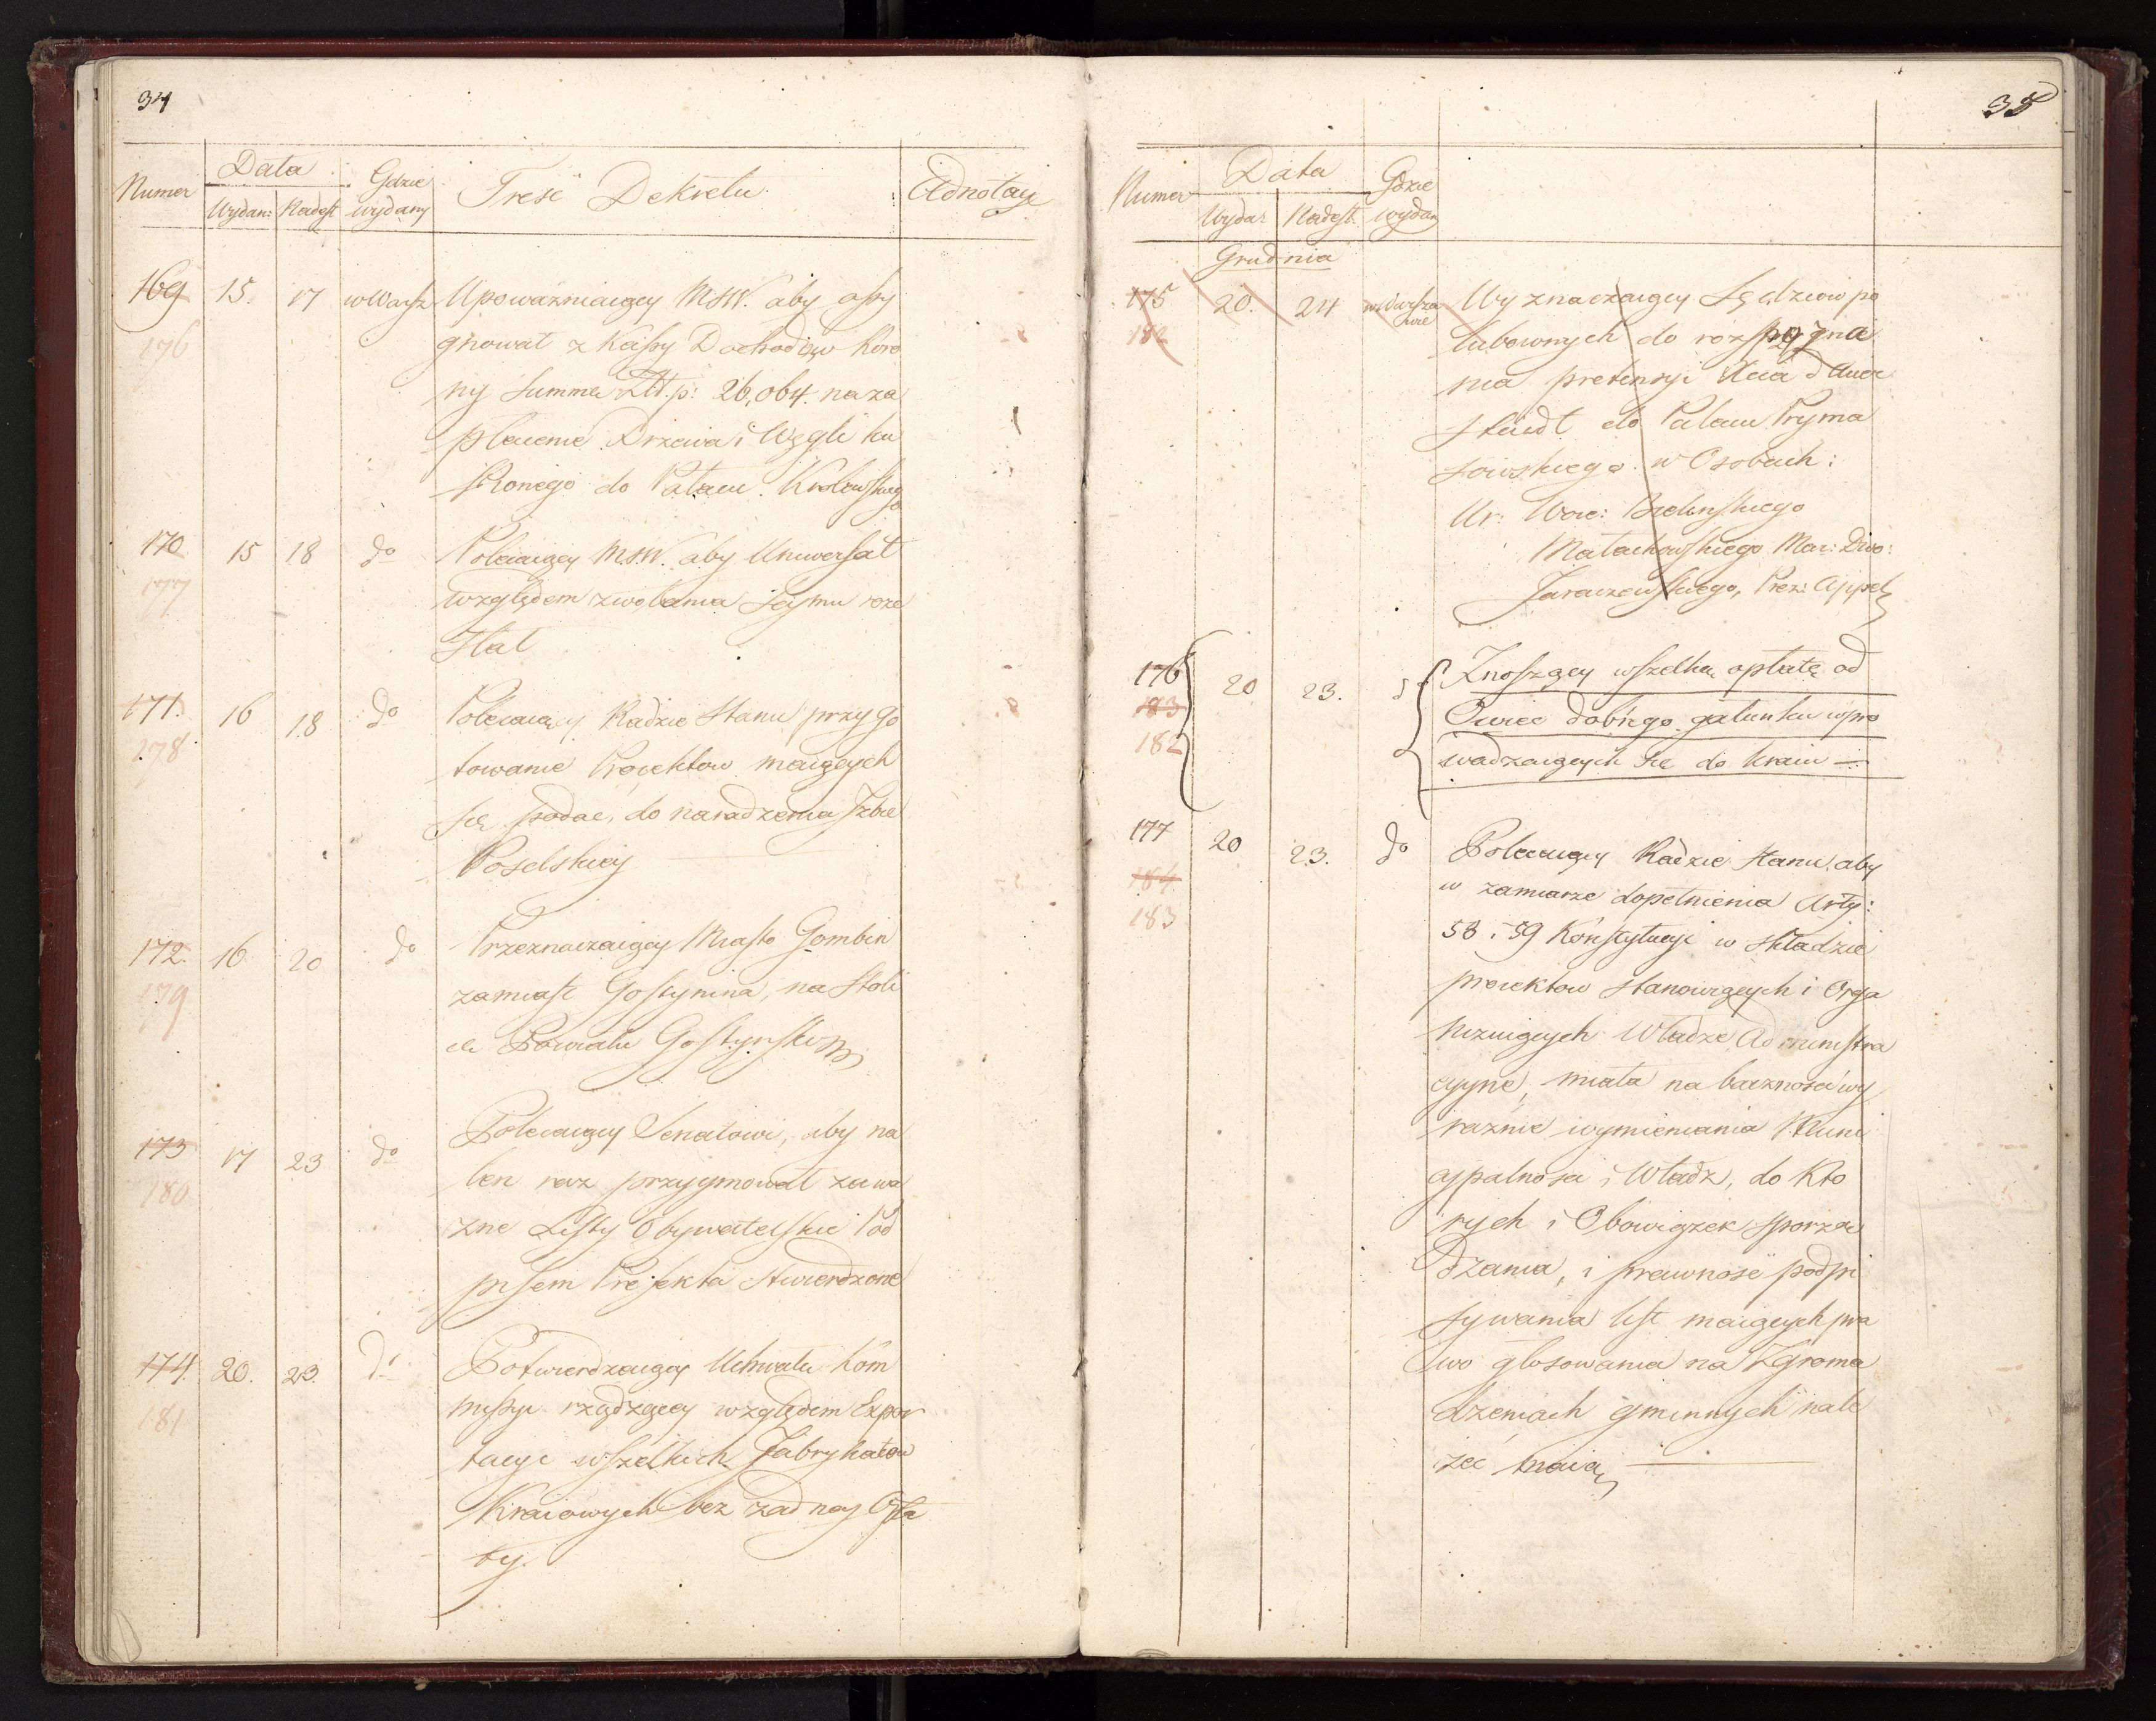 34
Numer Data Gdzie wydany Treść Dekretu Adnotacye
Wydan: Nadest
169 15. 17 w Warsz Upoważniaiący MSW. aby assy
176
gnował z Kassy Dochodów Koro
ny Summe Złt.p: 26,064. na za
płacenie Drzewa i Węgli ku
pionego do Pałacu Krolewskiego
170 15 18 do Polecaiący M.S.W. aby Uniwersał
177
względem zwołania Seymu roze
słał
171. 16 18 do Polecaiący Radzie Stanu przygo
178.
towanie Proiektow maiących
się podac, do naradzenia Izbie
Poselskiey
172. 16 20 do Przeznaczaiący Miasto Gombin
179
zamiast Gostynina, na Stoli
cę Powiatu Gostynsk
173 17 23 do Polecaiący Senatowi, aby na
180
ten raz przyymował za wa
zne Listy Obywatelskie Pod
pisem Prefekta stwierdzone
174. 20. 23. do Potwierdzaiący Uchwałę Kom
181
missyi rządzącey względem Expor
tacyi wszelkich Fabrykatow
Kraiowych bez żadney Opła
ty.
35
Numer Data Gdzie wydan
Wyda: Nadest.
Grudnia
175 20. 24 w Warsza Wyznaczaiący Sędziow po
wie
182
lubownych do rozpozna
nia pretensyi d'Auer
stadt do Pałacu Pryma
sowskiego w Osobach:
Ur: Woie: Bielinskiego
Małachowskiego Mar: Dwo:
Jaraczewskiego, Prez: Appel
176 20 23. Znoszący wszelką opłatę od
183
Owiec dobrego gatunku wpro
182
wadzaiących się do kraiu —
177 20 23. do Polecaiący Radzie Stanu, aby
184.
w zamiarze dopełnienia Arty:
183
58 i 59 Konstytucyi w składzie
proiektow stanowiących i Orga
nizuiących Władze Administra
cyyne, miała na baczności wy
raznie wymienienia Muni
cypalnosci i Władz, do Kto
rych i Obowiązek sporzą
dzania, i prawność podpi
sywania list maiących pra
wo głosowania na Zgroma
dzeniach gminnych nale
żec maią